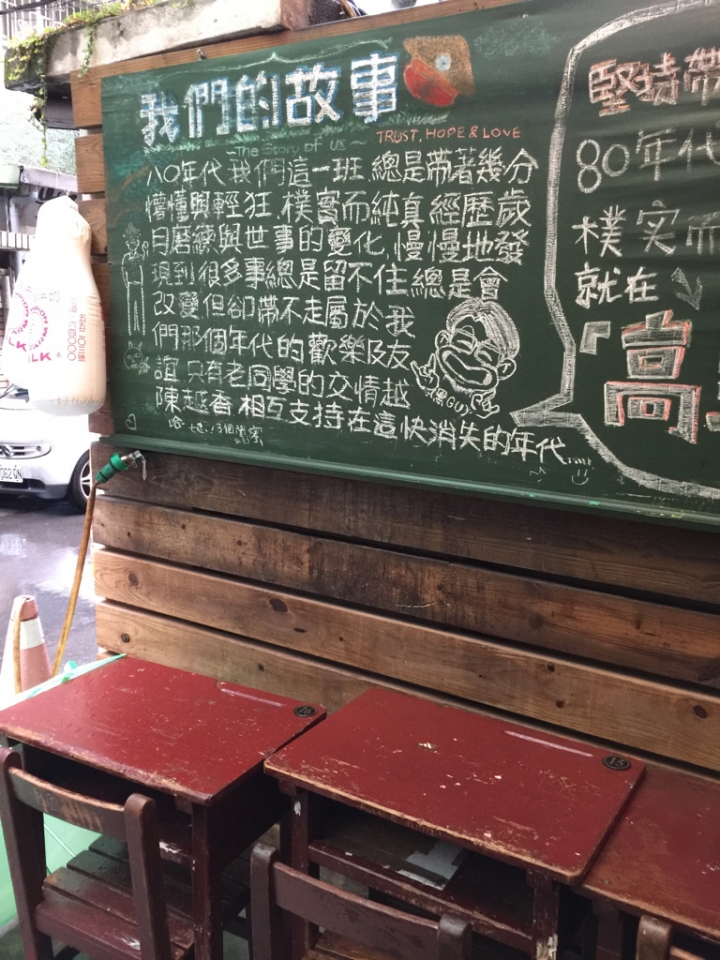 我們的故事
The Story of us~
TRUST, HOPE & LOVE
八〇年代我們這一班.總是帶著幾分
懵懂與輕狂.樸實而純真.經歷歲
月磨練與世事的變化.慢慢地發
現到很多事總是留不住總是會
改變但卻帶不走屬於我
們那個年代的歡樂及友
誼.只有老同學的交情越
陳越香.相互支持在這快消失的年代
堅持帶
80年代
樸实而
就在
「高
16
15